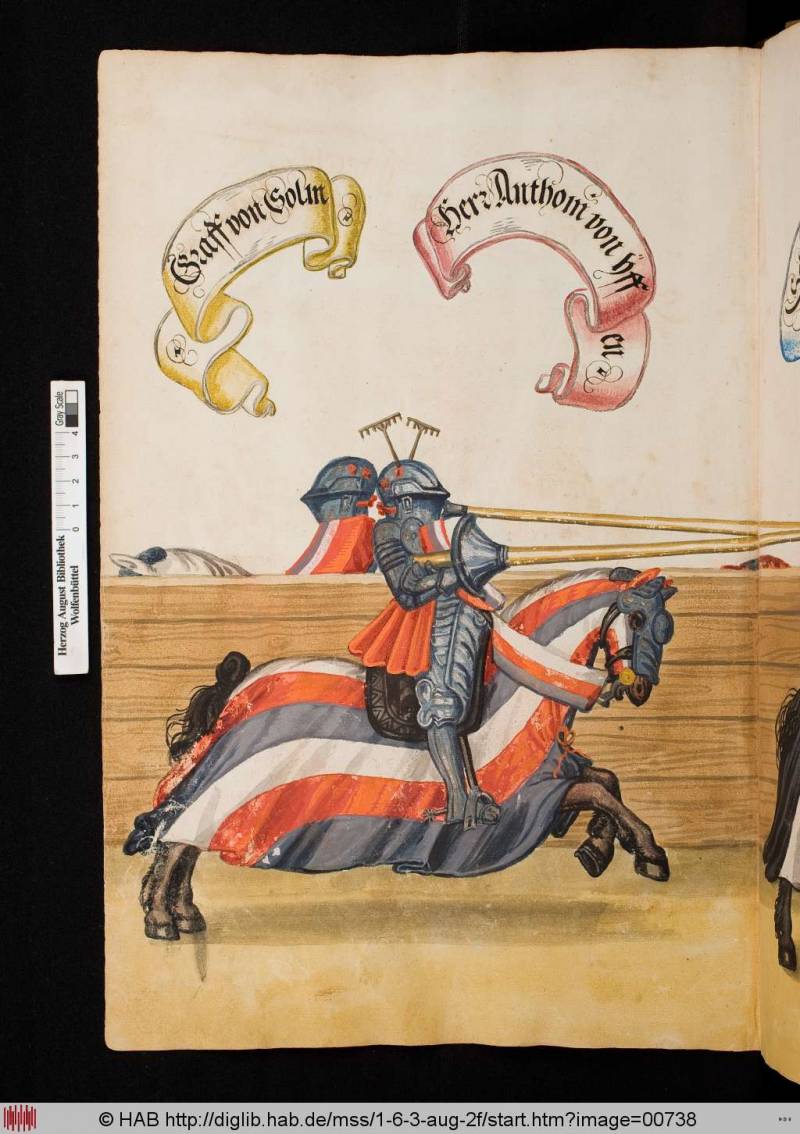 Graff von Solm
Herr Anthom von yff
en
Gray Scale
0 1 2 3 4
Herzog August Bibliothek
Wolfenbüttel
© HAB http://diglib.hab.de/mss/1-6-3-aug-2f/start.htm?image=00738